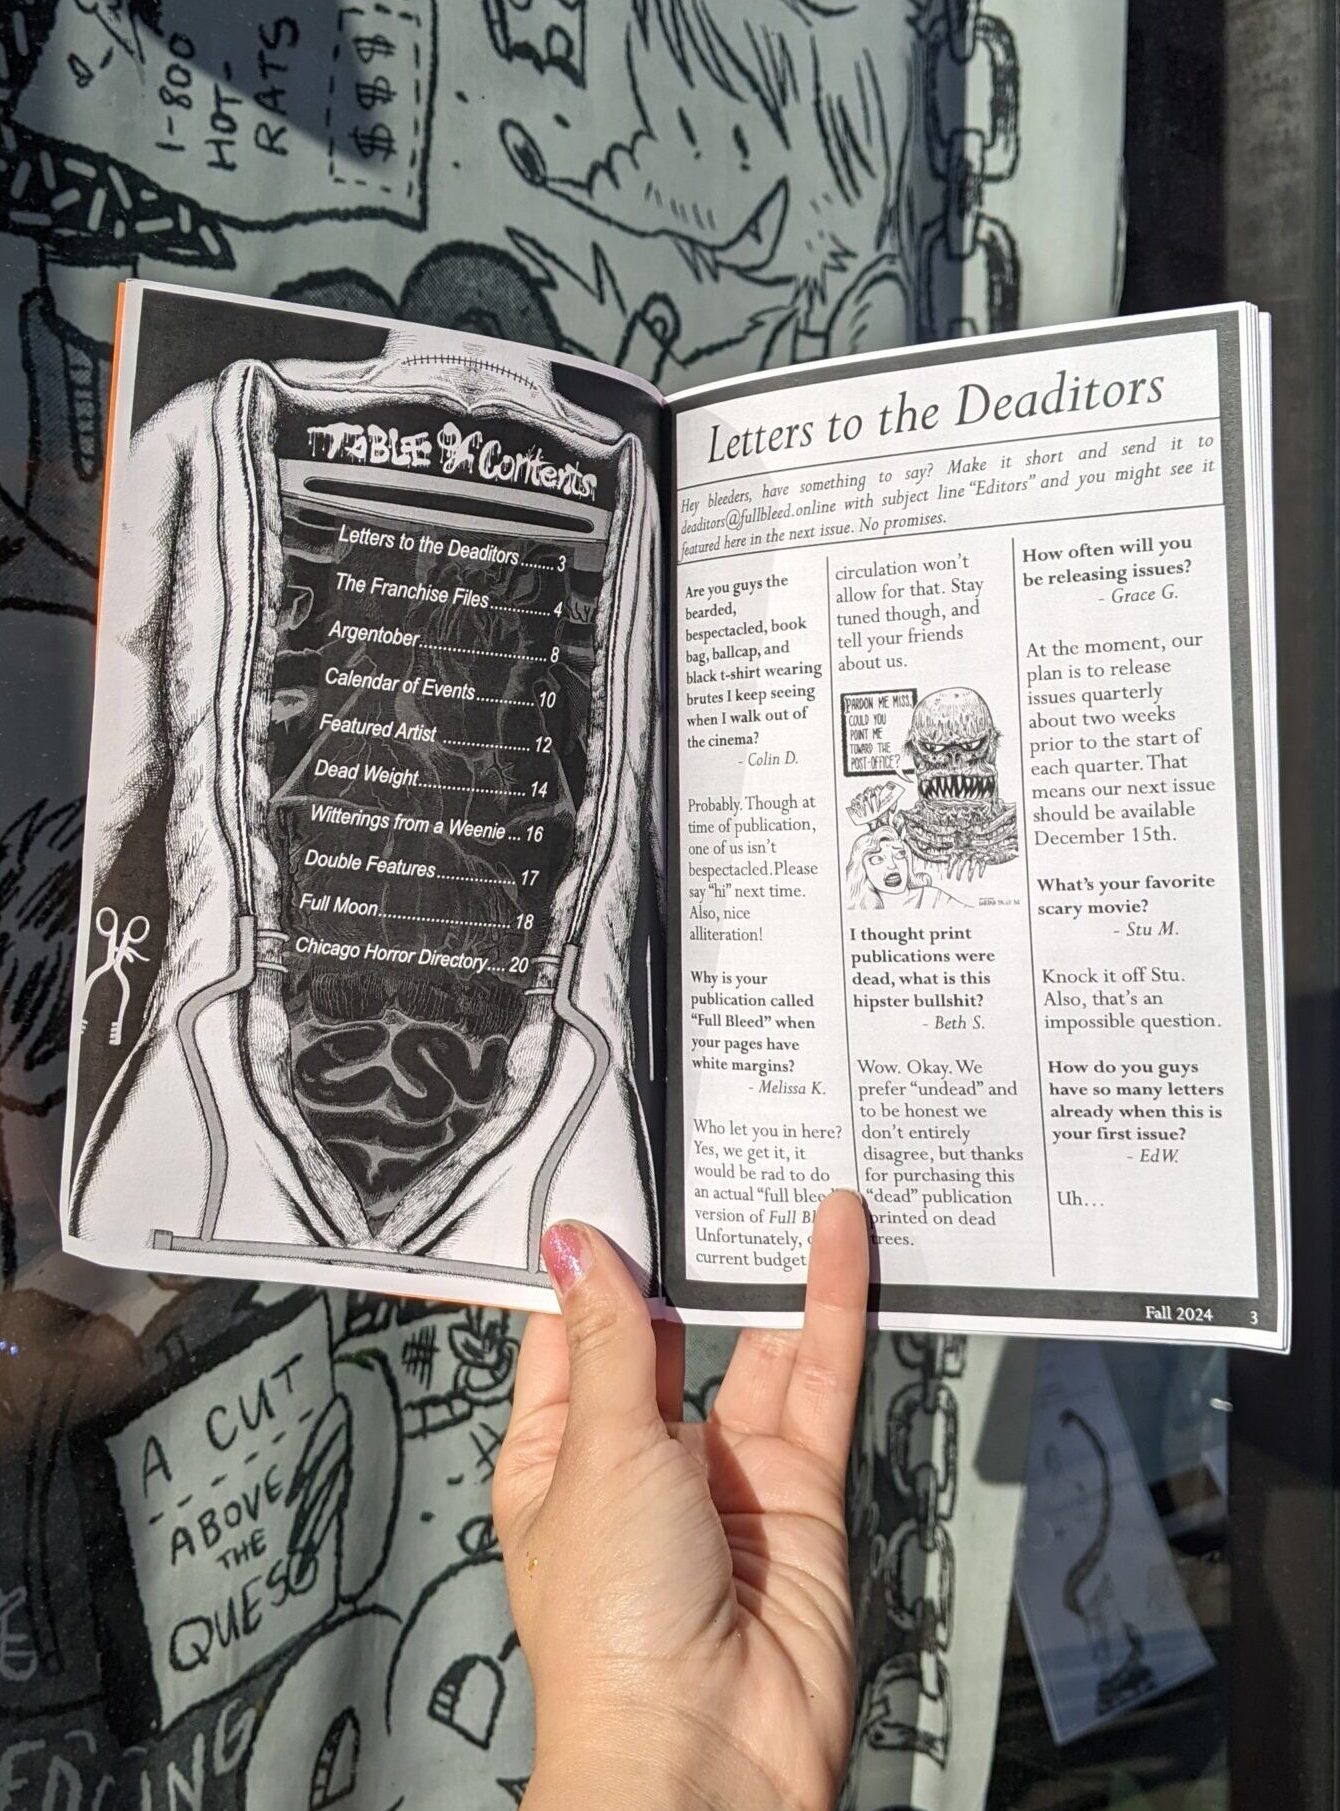 1-800
HOT-
RATS
$ $ $ $
TABLE OF Contents
Letters to the Deaditors........ 3
The Franchise Files............. 4
Argentober........................ 8
Calendar of Events........... 10
Featured Artist ................. 12
Dead Weight...................... 14
Witterings from a Weenie ... 16
Double Features................ 17
Full Moon.......................... 18
Chicago Horror Directory.... 20
Letters to the Deaditors
Hey bleeders, have something to say? Make it short and send it to
deaditors@fullbleed.online with subject line “Editors” and you might see it
featured here in the next issue. No promises.
Are you guys the
bearded,
bespectacled, book
bag, ballcap, and
black t-shirt wearing
brutes I keep seeing
when I walk out of
the cinema?
- Colin D.
Probably. Though at
time of publication,
one of us isn’t
bespectacled. Please
say “hi” next time.
Also, nice
alliteration!
Why is your
publication called
“Full Bleed” when
your pages have
white margins?
- Melissa K.
Who let you in here?
Yes, we get it, it
would be rad to do
an actual “full
version of Full
Unfortunately,
current budget
circulation won’t
allow for that. Stay
tuned though, and
tell your friends
about us.
PARDON ME MISS,
COULD YOU
POINT ME
TOWARD THE
POST-OFFICE?
I thought print
publications were
dead, what is this
hipster bullshit?
- Beth S.
Wow. Okay. We
prefer “undead” and
to be honest we
don’t entirely
disagree, but thanks
for purchasing this
“dead” publication
printed on dead
trees.
How often will you
be releasing issues?
- Grace G.
At the moment, our
plan is to release
issues quarterly
about two weeks
prior to the start of
each quarter. That
means our next issue
should be available
December 15th.
What’s your favorite
scary movie?
- Stu M.
Knock it off Stu.
Also, that’s an
impossible question.
How do you guys
have so many letters
already when this is
your first issue?
- Ed W.
Uh…
Fall 2024 3
A CUT
ABOVE
THE
QUESO